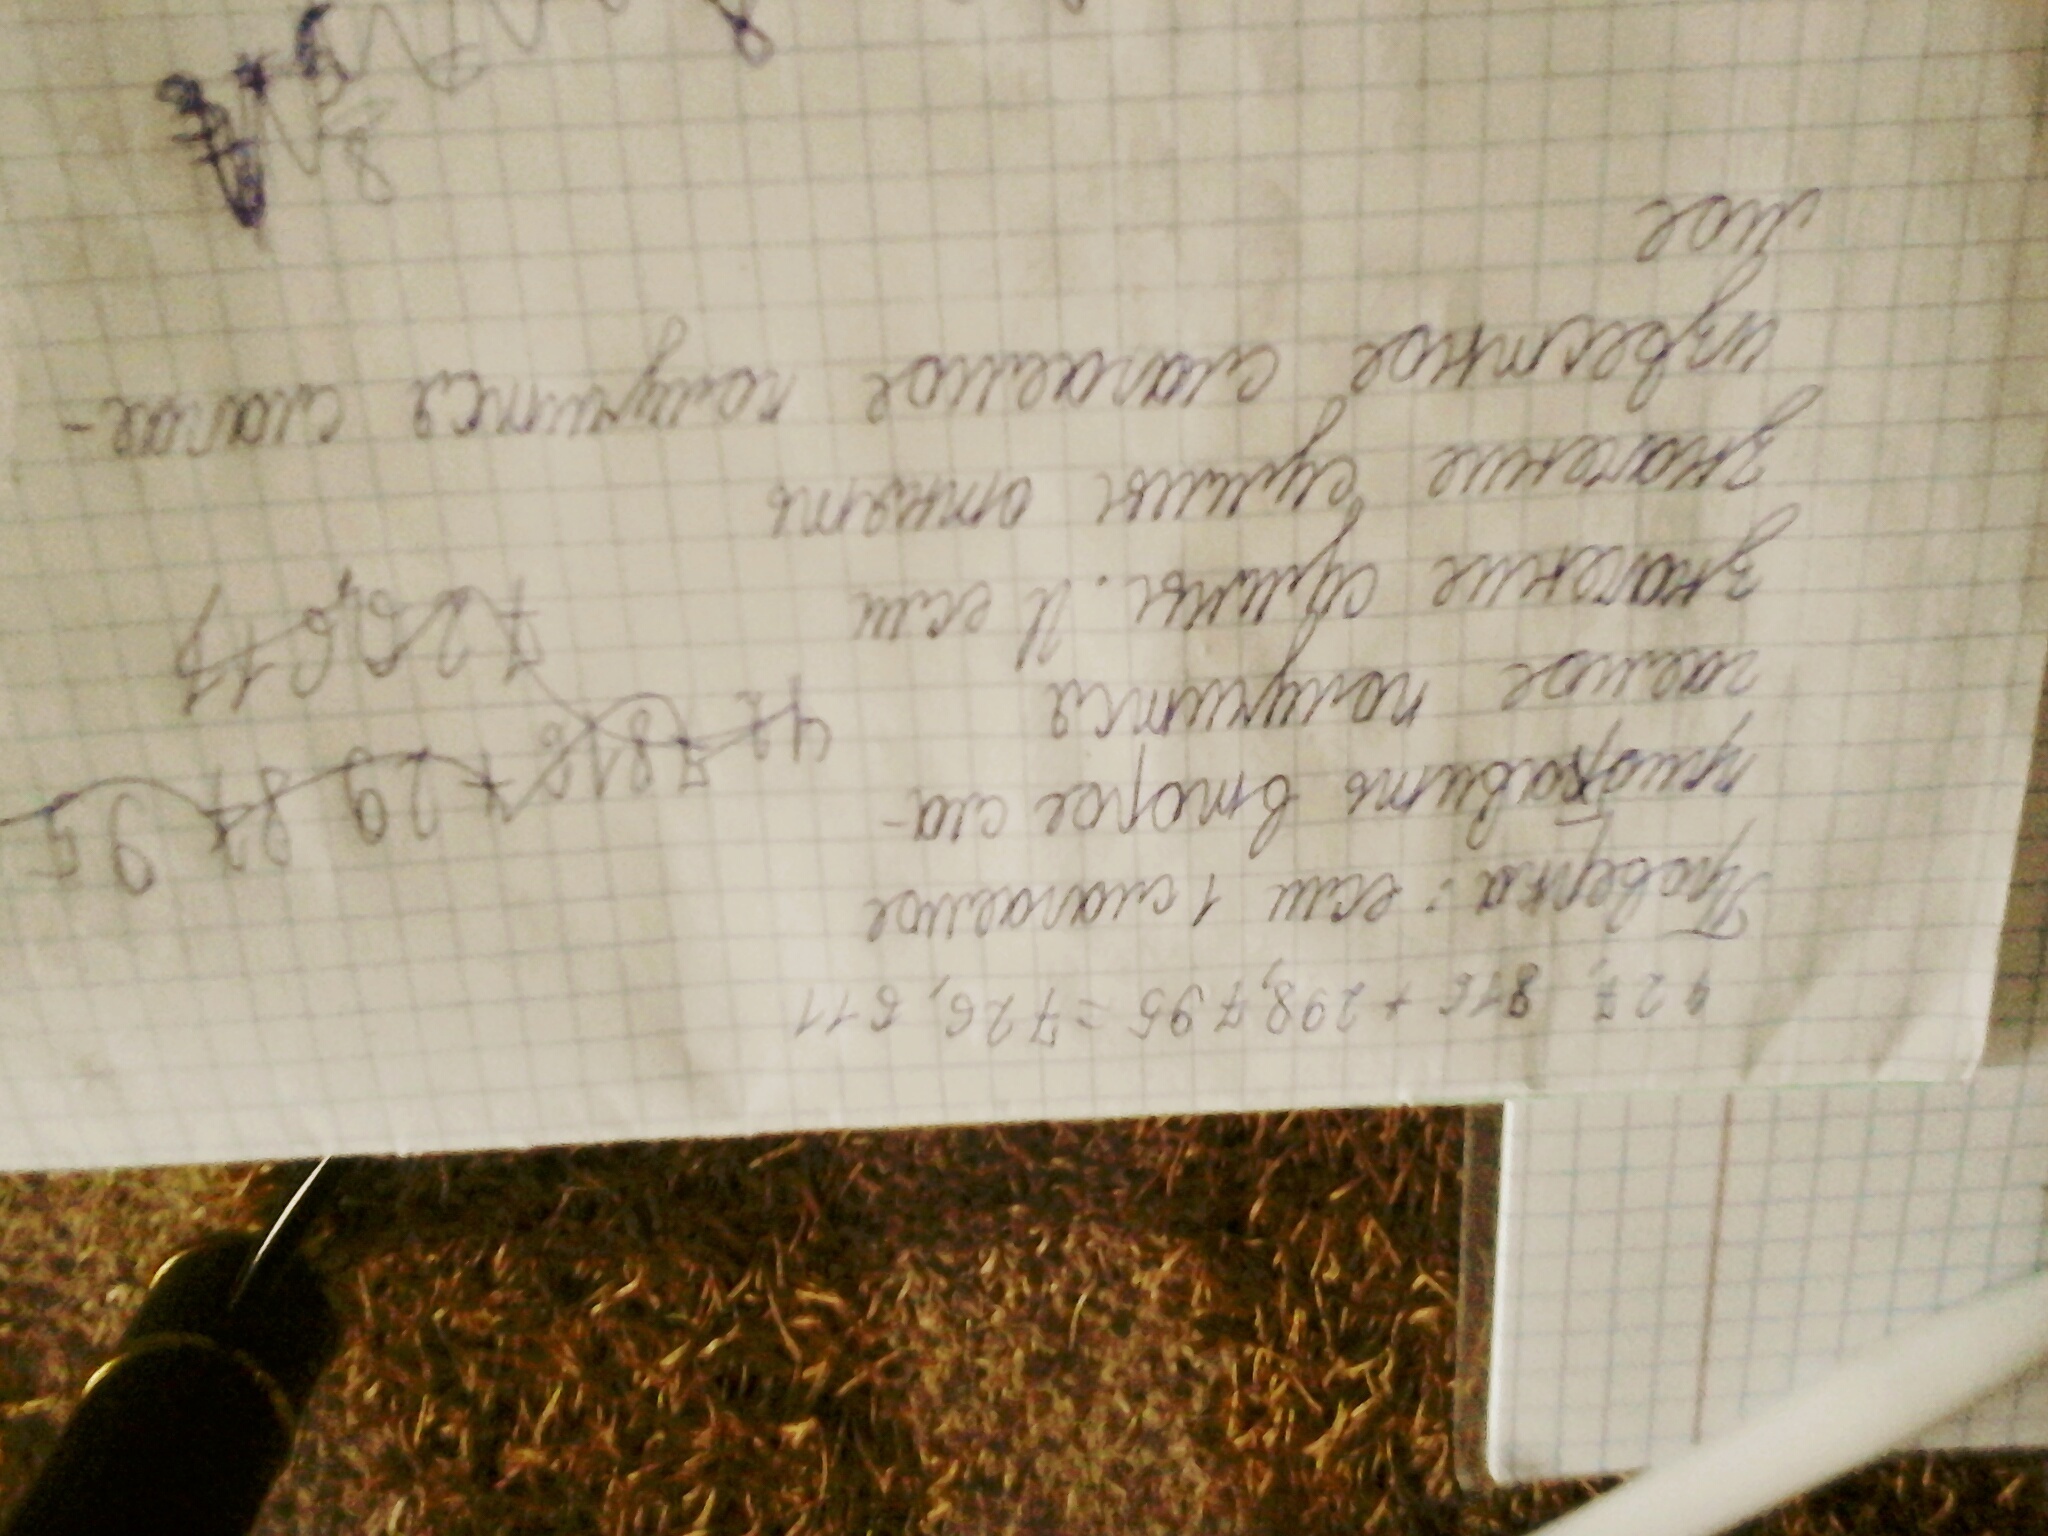 427,816 + 298,795 = 726,611
Проверка: если 1 слагаемое
прибавить второе сла-
гаемое получится
значение суммы. И если
значение суммы отнять
известное слагаемое получится слагае-
мое